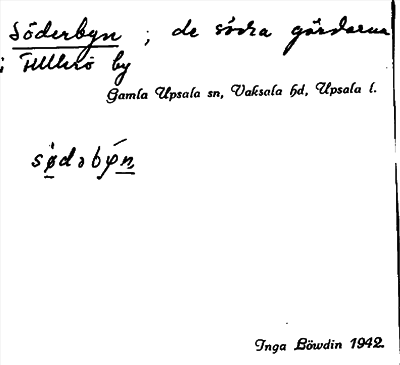 Söderbyn ; de södra gårdarna
i Ullerö by
Gamla Upsala sn, Vaksala hd, Upsala l.
sødəbýn
Inga Böwdin 1942.